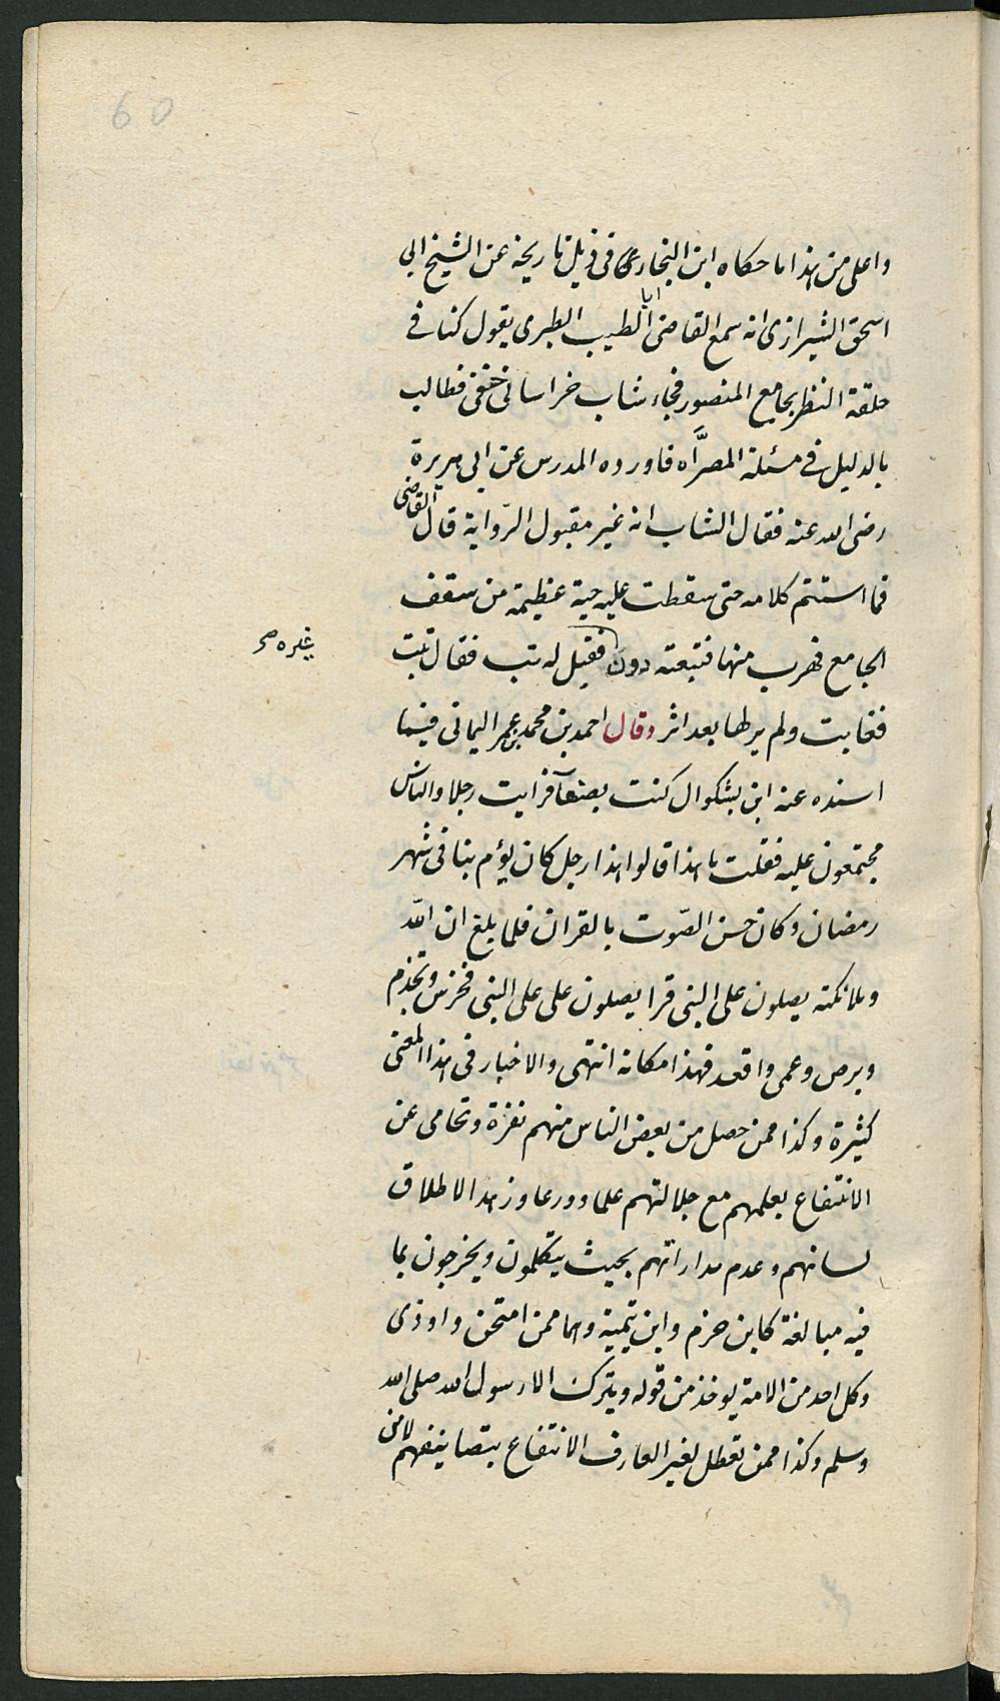 60
واعلى من هذا ما حكاه ابن النجار فى ذيل تاريخه عن الشيخ ابى
اسحق الشيرازى انه سمع القاضى ابا الطيب الطبرى يقول كنا فى
حلقة النظر بجامع المنصور فجاء شاب خراسانى حنفى فطالب
بالدليل فى مسئلة المصرَّاه فاورده المدرس عن ابى هريرة
رضى الله عنه فقال الشاب انه غير مقبول الرّواية قال القاضى
فما استتم كلامه حتى سقطت عليه حية عظيمة من سقف
الجامع فهرب منها فتبعته دون فقيل له تب فقال تبت
غيره صح
فغابت ولم ير لها بعد اثر وقال احمد بن محمد بن عمر اليمانى فيما
اسنده عنه ابن بشكوال كنت بصنعآ فرايت رجلا والناس
مجتمعون عليه فقلت ما هذا قالوا هذا رجل كان يؤم بنا فى شهر
رمضان وكان حسن الصّوت بالقران فلما بلغ ان الله
وملائكته يصلون على النبى قرا يصلون على على النبى فخرس وتجذم
وبرص وعمى واقعد فهذا مكانه انتهى والاخبار فى هذا المعنى
كثيرة وكذا ممن حصل من بعض الناس منهم نفرة وتحامى عن
الانتفاع بعلمهم مع جلالتهم علما وورعا وزهدا لاطلاق
لسانهم وعدم مداراتهم بحيث يتكلمون ويخرجون بما
فيه مبالغة كابن حزم وابن تيمية وهما ممن امتحن واوذى
وكل احد من الامة يوخذ من قوله ويترك الا رسول الله صلى الله
وسلم وكذا ممن تعطل لغير العارف الانتفاع بتصانيفهم لامن